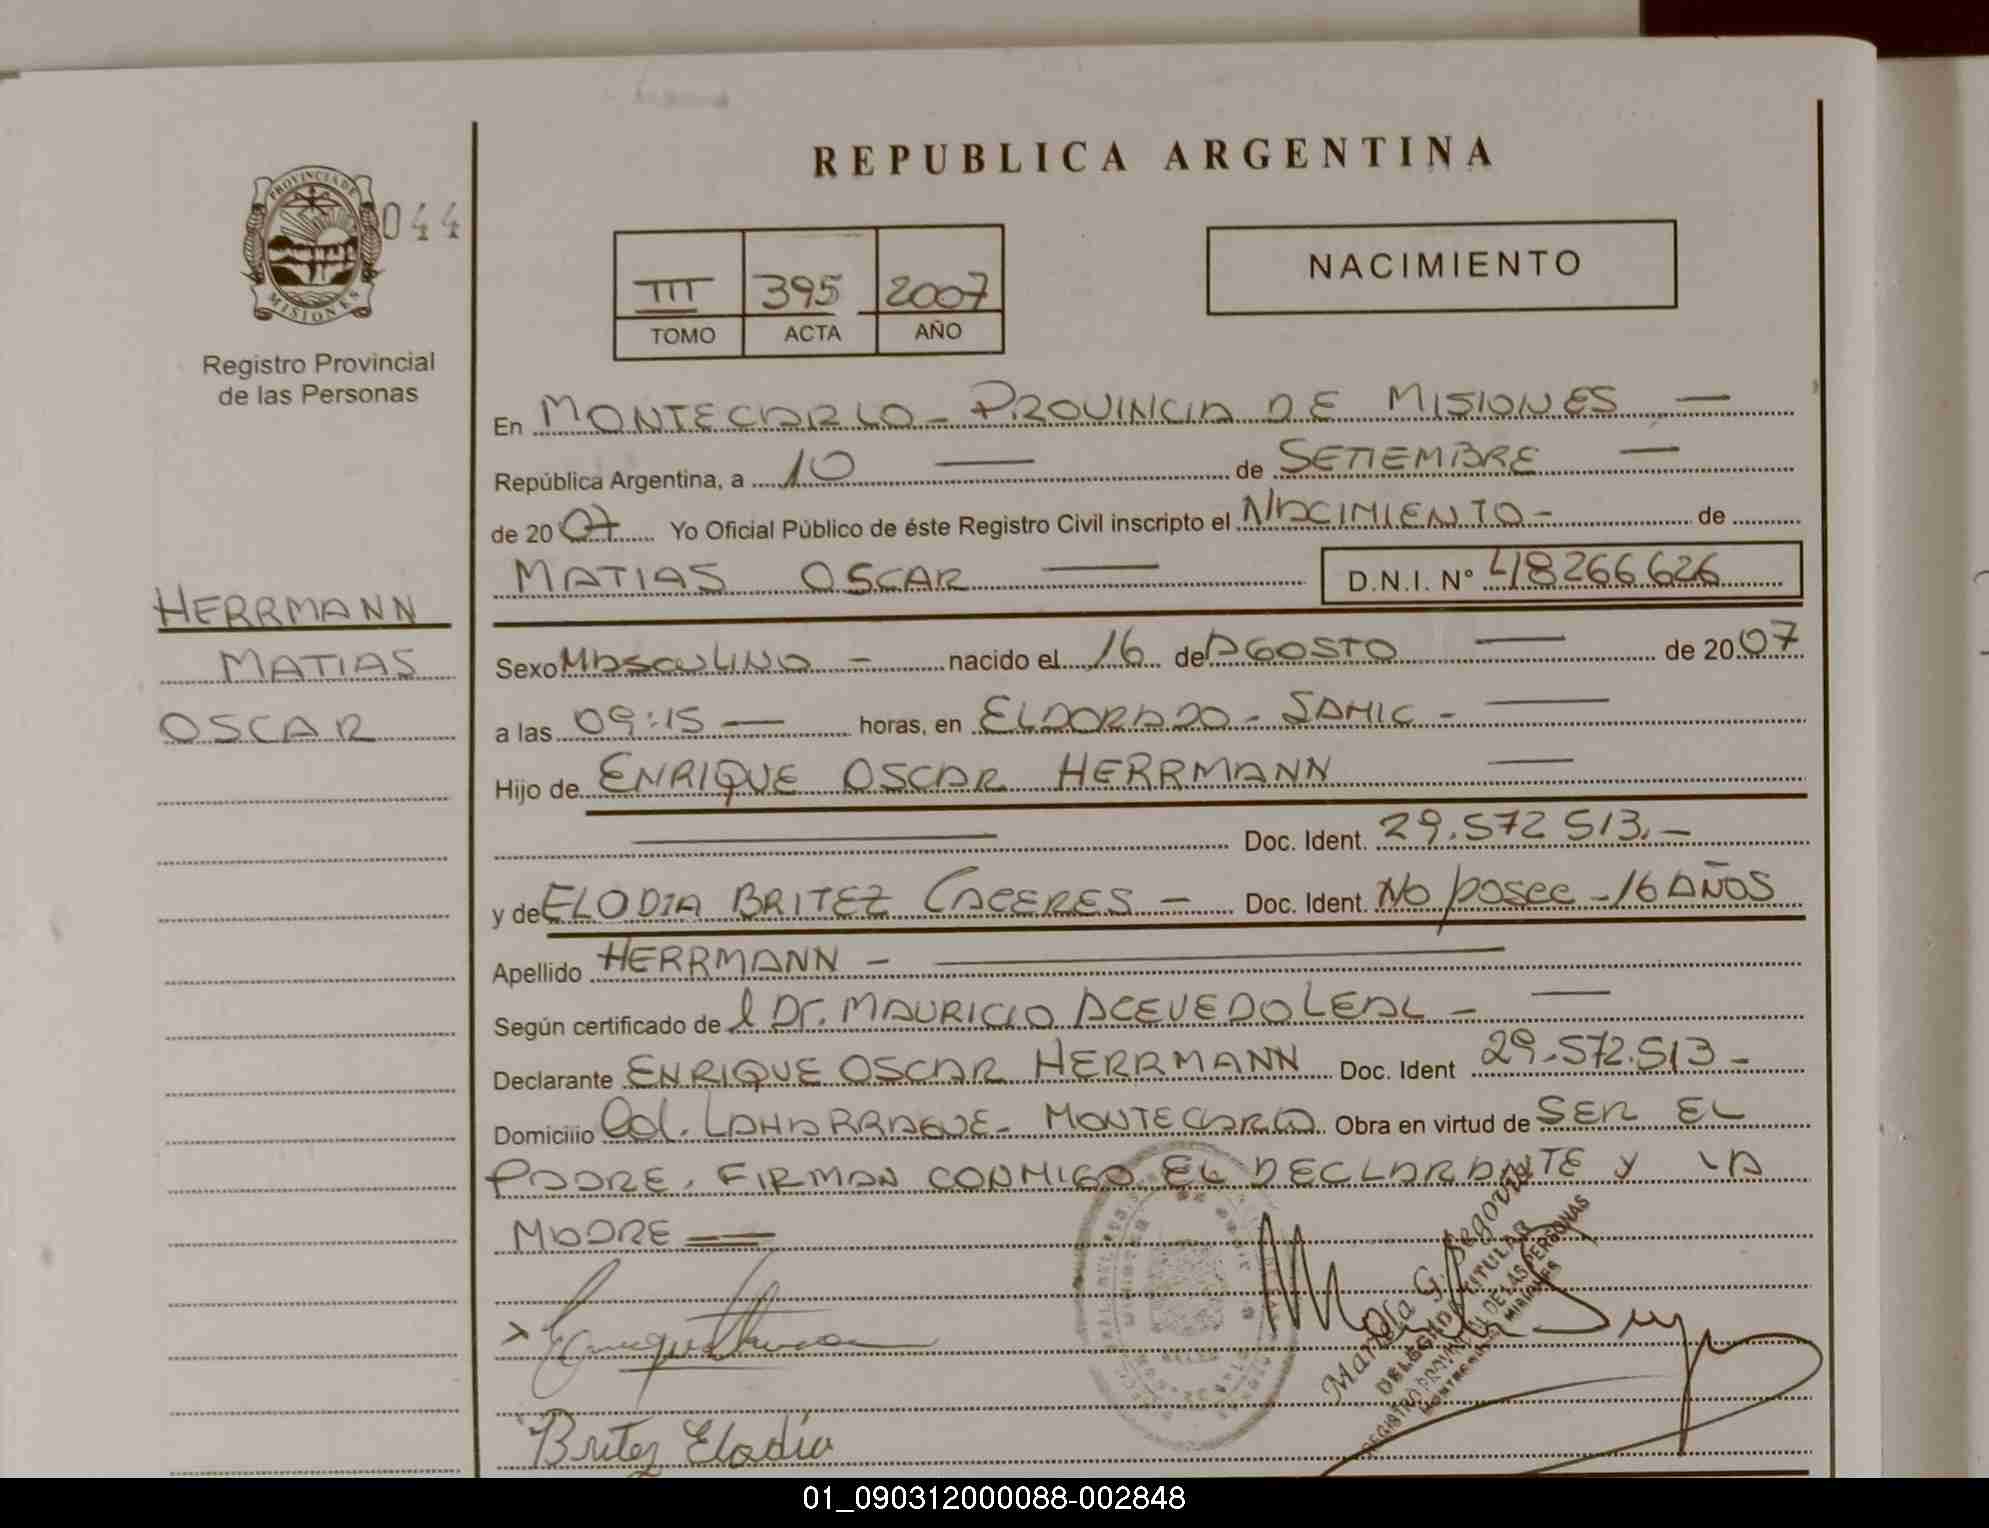 REPUBLICA ARGENTINA
PROVINCIA DE
MISIONES
044
Registro Provincial
de las Personas
III 395 2007
TOMO ACTA AÑO
NACIMIENTO
En MONTECARLO - PROVINCIA DE MISIONES —
República Argentina, a 10 — de SETIEMBRE —
de 2007 Yo Oficial Público de éste Registro Civil inscripto el NACIMIENTO - de
MATIAS OSCAR — D.N.I. N° 48266626
HERRMANN
MATIAS
OSCAR
Sexo MASCULINO - nacido el 16 de AGOSTO — de 2007
a las 09:15 — horas, en ELDORADO - SAMIC - —
Hijo de ENRIQUE OSCAR HERRMANN —
— Doc. Ident. 29.572 513. -
y de ELODIA BRITEZ CACERES - Doc. Ident. No posee - 16 AÑOS
Apellido HERRMANN - —
Según certificado de l Dr. MAURICIO ACEVEDO LEAL - —
Declarante ENRIQUE OSCAR HERRMANN Doc. Ident 29.572.513 -
Domicilio Col. LAHARRAGUE - MONTECARLO Obra en virtud de SER EL
PADRE. FIRMAN CONMIGO EL DECLARANTE Y LA
MADRE =
Mariela G. Segovia
DELEGADA TITULAR
REGISTRO PROVINCIAL DE LAS PERSONAS
Britez Elodia
01_090312000088-002848